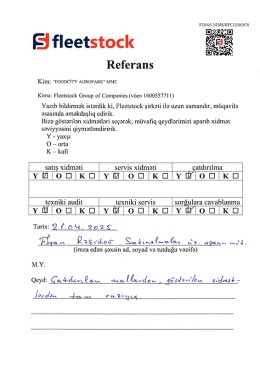 FLS/05.3/EMS/RPC/2/S03878
fleetstock
Referans
Kim: "FOODCİTY AGROPARK" MMC
Kimə: Fleetstock Group of Companies (vöen 1600557711)
Yazıb bildirmək istərdik ki, Fleetstock şirkəti ilə uzun zamandır, müqavilə
əsasında əməkdaşlıq edirik.
Bizə göstərilən xidmətləri seçərək, müvafiq qeydlərimizi aparıb xidmət
səviyyəsini qiymətləndiririk.
Y - yaxşı
O – orta
K – kafi
satış xidməti servis xidməti çatdırılma
Y ☑ O ☐ K ☐ Y ☑ O ☐ K ☐ Y ☑ O ☐ K ☐
texniki audit texniki servis sorğulara cavablanma
Y ☑ O ☐ K ☐ Y ☑ O ☐ K ☐ Y ☑ O ☐ K ☐
Tarix: 21.04.2025
Rəşidov Satınalmalar üz.
(imza edən şəxsin ad, soyad və tutduğu vəzifə)
M.Y.
Qeyd: Çatdırılan mallardan, göstərilən xidmət-
lərdən tam razıyıq.